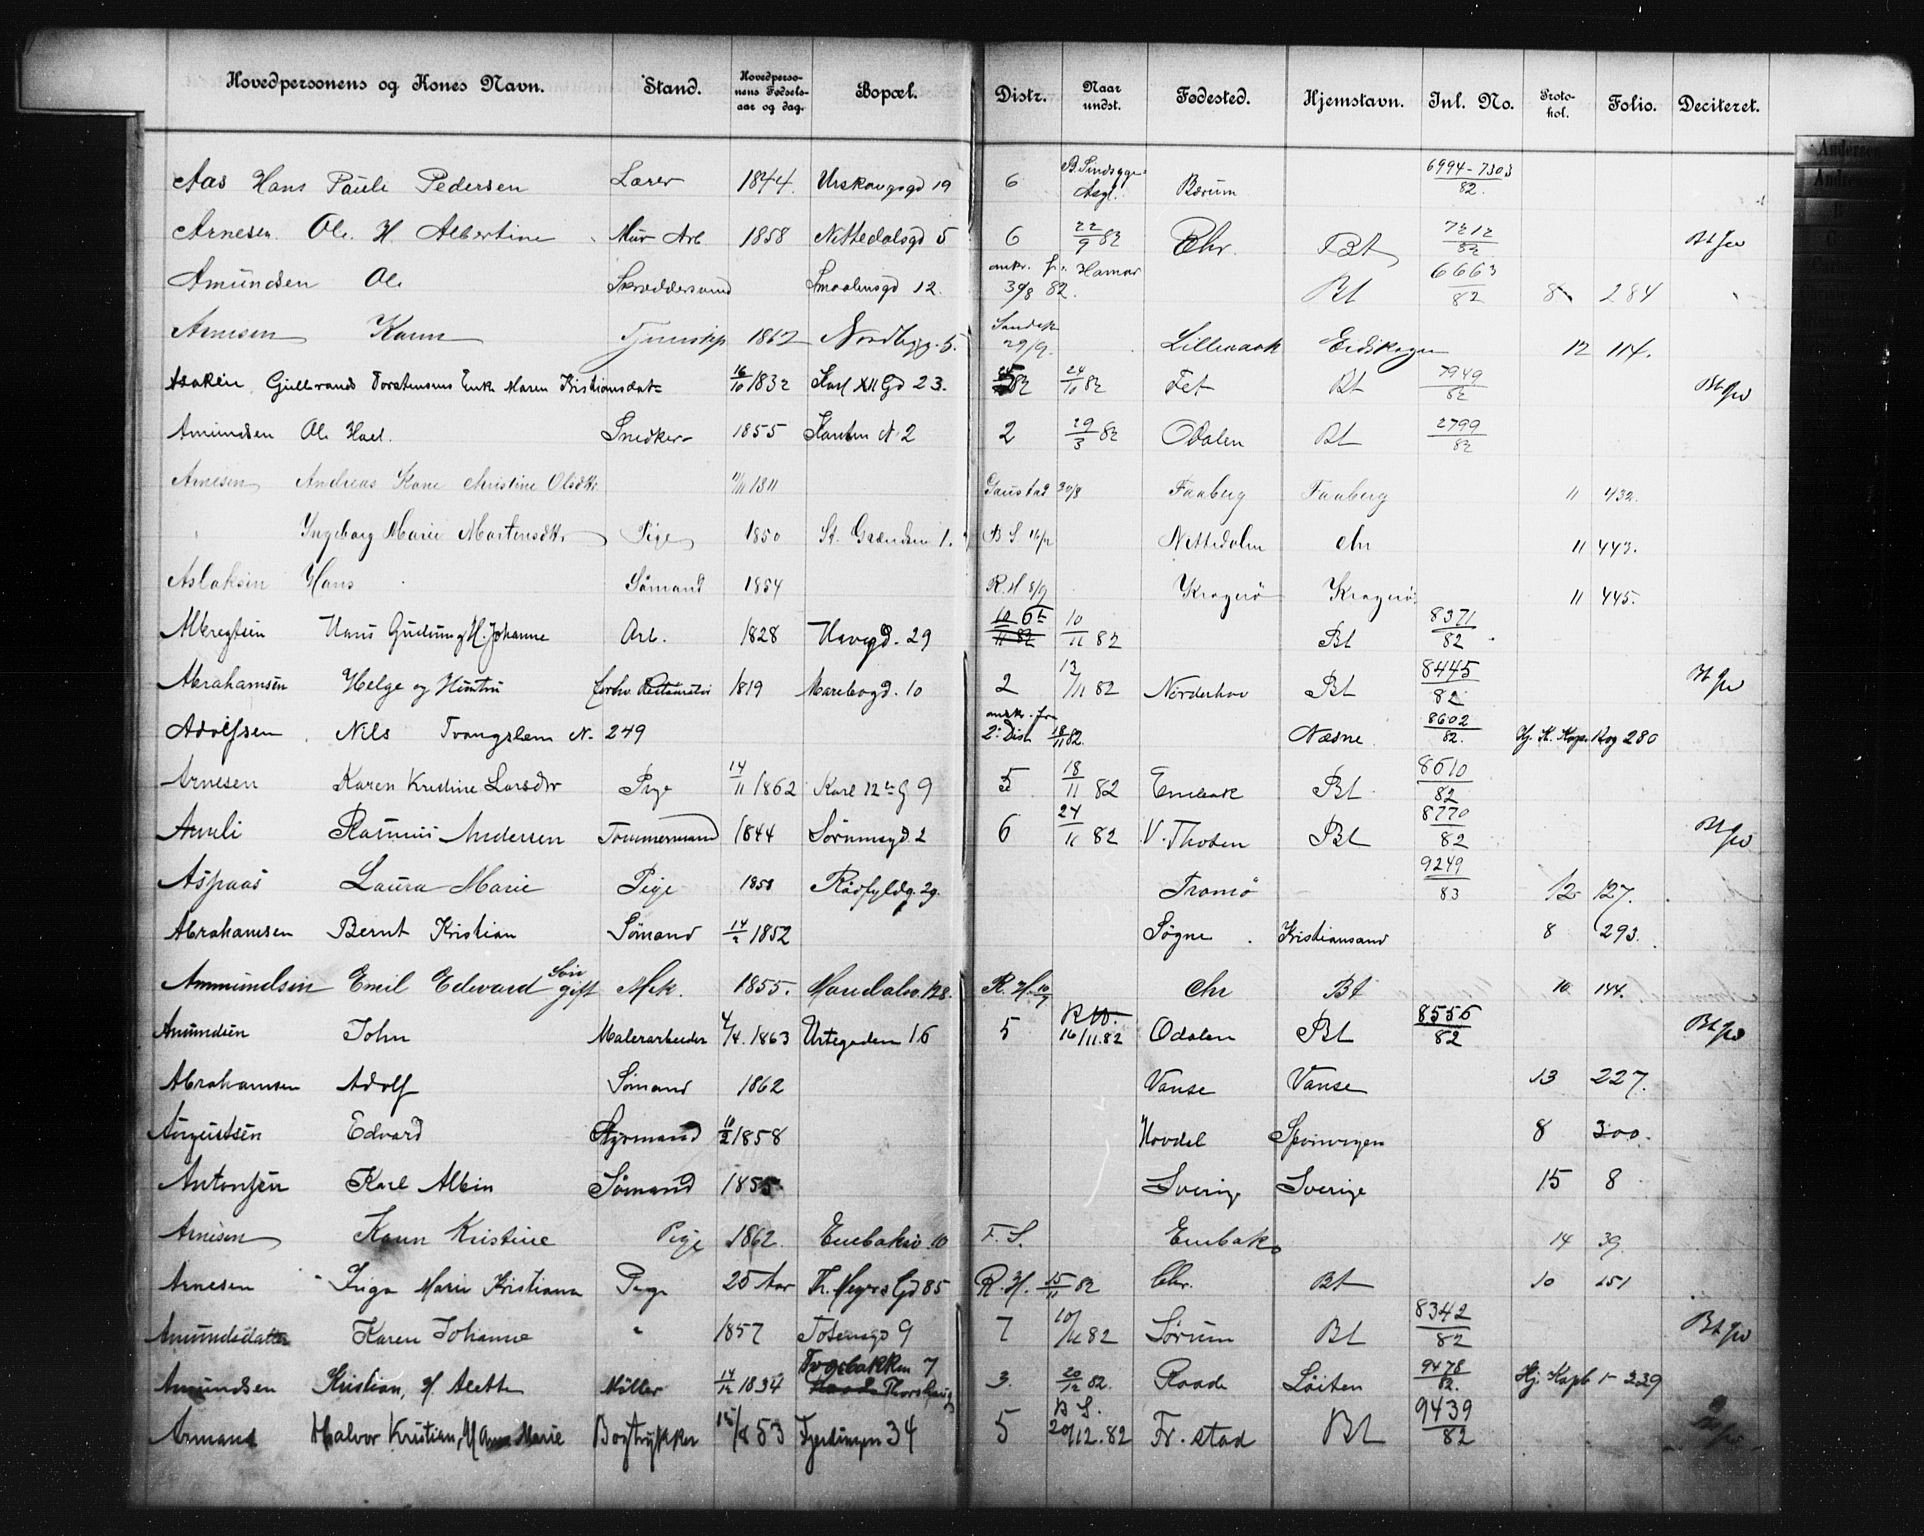 Hovedpersonens og Kones Navn. Stand. Hovedpersonens Fødselsaar og dag. Bopæl. Distr. Naar undst. Fødested. Hjemstavn. Inl. No. Protokol. Folio. Deciteret.
Aas Hans Pauli Pedersen Lærer 1844. Urskougsgd 19 6 B. Sindsyge Asyl. Bærum 6994-7303/82
Arnesen Ole H. Albertine Mur Arb 1858 Nittedalsgd 5 6 22/9 82 Chr. Bt 7212/82
Amundsen Ole Skræddersvend Smaalensgd 12. ankr. fr. Hamar 30/8 82. Bt 6663/82 8 284
Arnesen Karen 1862 Nordbyg. 5. 29/9. Eidskogen 12 114.
Gulbrands Torstensens Enke Maren Kristiansdat 16/10 1832 Karl XII Gd 23. 24/11 82 Fet Bt 7949/82
Amundsen Ole Snedker 1855 2 2 29/3 82 Odalen Bt 2799/82
Arnesen Andreas Kone Christine Olsdtr 1811 Gaustad 30/8 Faaberg Faaberg 11 432.
Ingeborg Marie Martinsdtr Pige 1850 St. Grændsen 1. B S Nittedalen Chr 11 443.
Aslaksen Hans Sömand 1854 R.H 8/9 Kragerö Kragerö 11 445.
Albregtsen Hans Gudmung H. Johanne Arb. 1828 29 10/11 82 Bt 8371/82
Abrahamsen Helge og Hustru forhv. 1819 Mariboegd. 10 2 13/11 82 Norderhov Bt 8445/82
Adolfsen Nils Tvangslem N. 249 ankr. fra 2. Dist 18/11 82 Næsne 8602/82 280
Arnesen Karen Kristine Larsdtr Pige 14/11 1862 Karl 12te G 9 5 18/11 82 Enebak Bt 8610/82
Amli Rasmus Andersen Tømmermand 1844 Sörumsgd. 2 6 24/11 82 V. Thoten Bt 8770/82
Aspaas Laura Marie Pige 1858 Rådfyldg. 29. Tromsö 9249/83 12 127.
Abrahamsen Bernt Kristian Sömand 14/2 1852 Søgne Kristiansand 8 293.
Ammundsen Emil Edvard Søn gift Mek. 1855. Maridalsv. 128. R. H. 10/9 Chr Bt 10 144.
Amundsen John Malerarbeider 4/4. 1863 Urtegaden 16 5 16/11.82 Odalen Bt 8556/82
Abrahamsen Adolf Sömand 1862 Vanse Vanse 13 227.
Augustsen Edvard Styrmand 10/2 1858 Hovdel Spoirvogen 8 300.
Antonsen Karl Albin Sömand 1855 Sverige Sverige 15 8
Arnesen Karen Kristine Pige 1862. Enebakv. 10 F. S. Enebak 14 39
Arnesen Inga Marie Kristiana Pige 25 Aar Th. Meyers Gd 85 R. H. 15/11 82 Chr. Bt 10 151
Amundsdatter Karen Johanne " 1857 Totensgd 9 7 10/11 82 Sørum Bt 8342/82
Amundsen Kristian, H. Alette Møller 14/12 1834 7 3. 20/12 82. Raade Löiten 9478/82. 239
Armand Halvor Kristian, H Anna Marie Bogtrykker 1853 Fjerdingen 34 5 B S. 20/12.82 Fr. stad Bt 9439/82